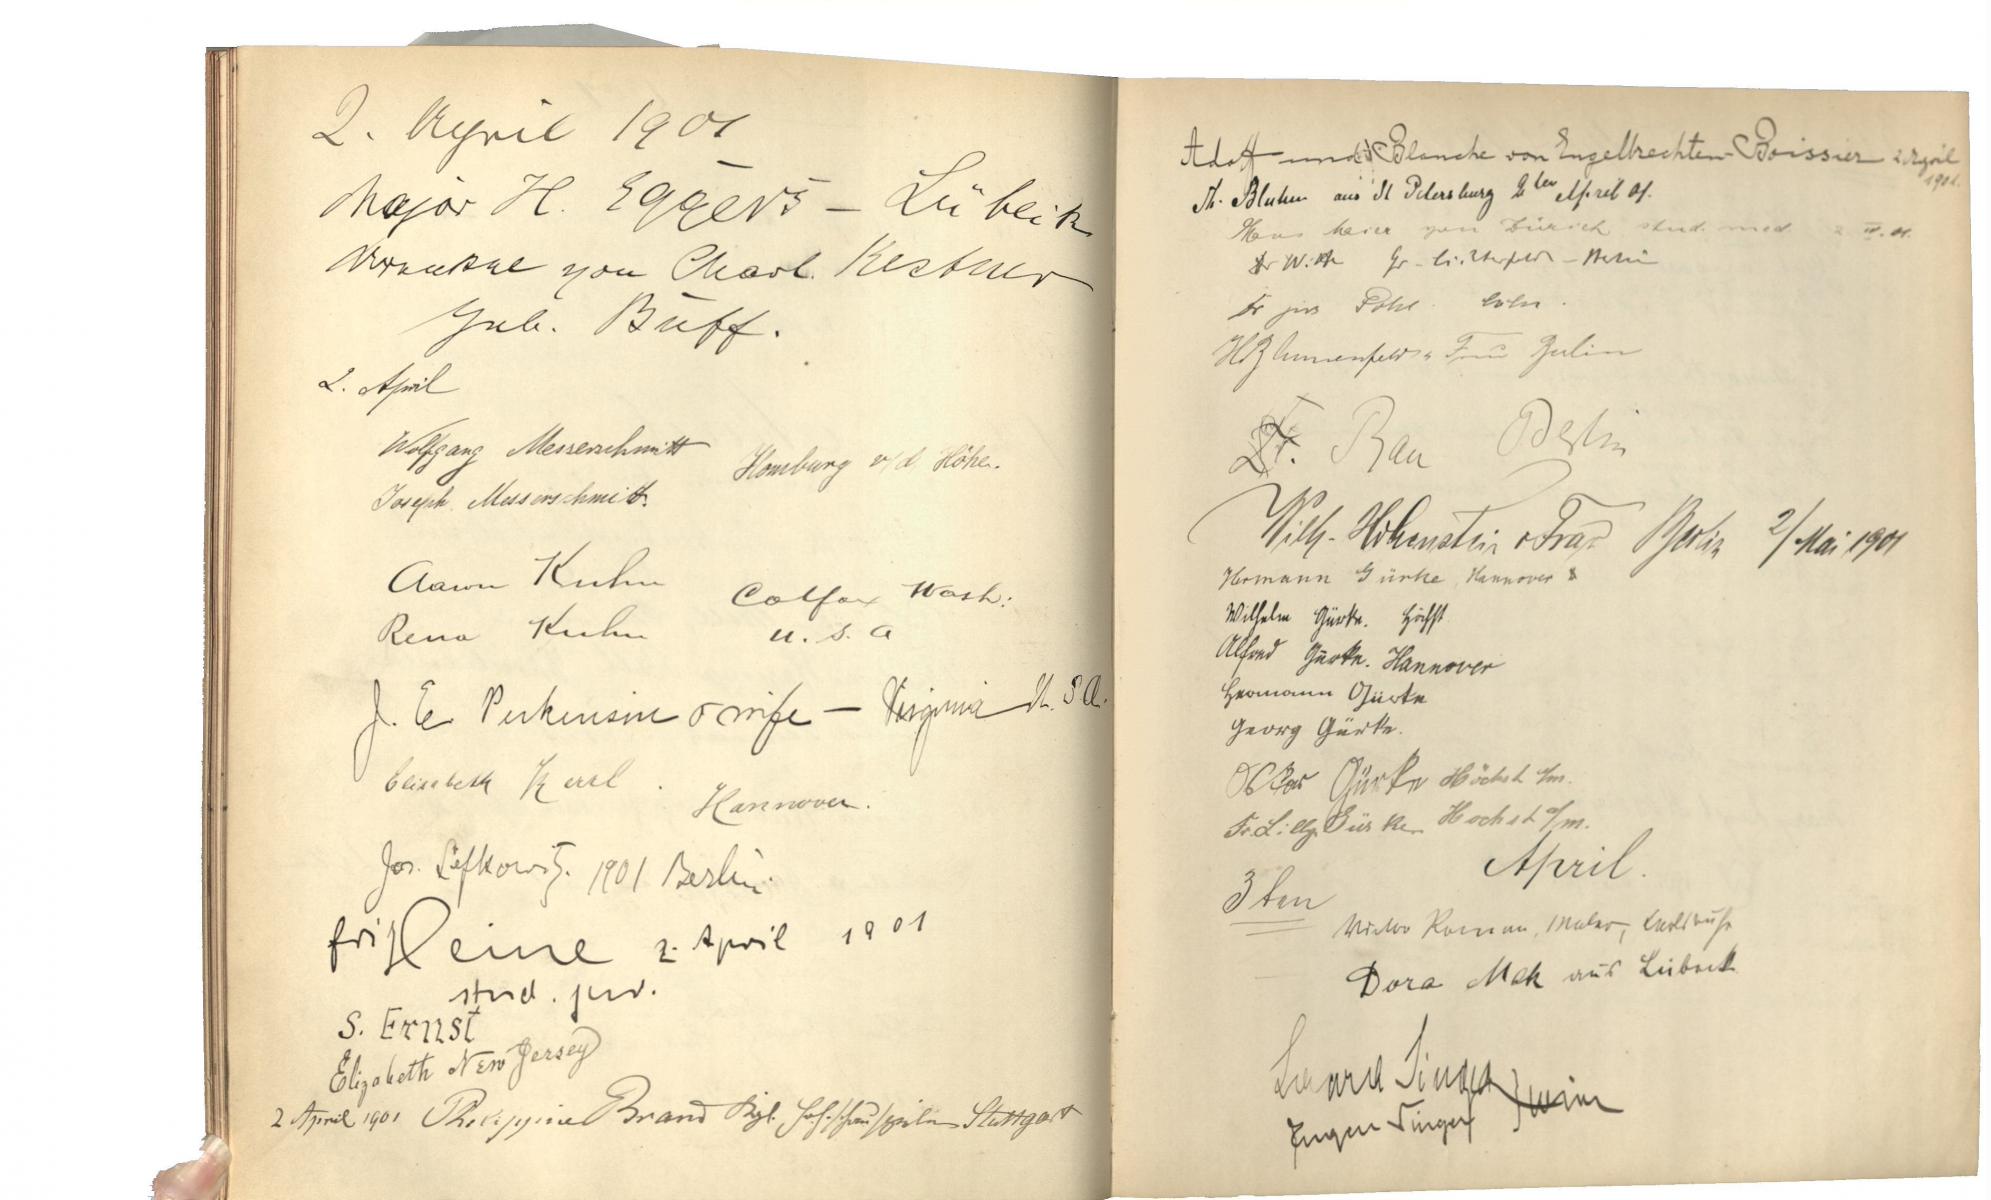 2. April 1901
Major H. Eggers – Lübeck
von Charl. Kestner
geb. Buff.
2. April
Wolfgang Messerschmitt Homburg v/d Höhe.
Joseph Messerschmitt.
Aaron Kuhn Colfax Wash:
Rena Kuhn U. S. A
J. E. Perkinson & wife – Virginia U. S. A.
Elisabeth Hannover.
Jos. Lefkowitz. 1901 Berlin.
fritz Heine 2. April 1901
stud. jur.
S. Ernst
Elizabeth New Jersey
2 April 1901 Philippine Brand Kgl. Hofschauspielerin Stuttgart
Adolf und Blanche von Engelbrechten-Boissier 2 April
1901.
Th. Bluhm aus St Petersburg 2ter April 01.
Hans Meier von Zürich stud. med. 2. IV. 01.
Dr Witte Gr-Lichterfelde – Berlin
Dr jur Pohl. Cöln.
H Blumenfeld u Frau Berlin
Fr. Rau Berlin
Wilh. Hohenstein u Frau Berlin 2/Mai 1901
Hermann Gürke, Hannover
Wilhelm Gürke. Höchst
Alfred Gürke. Hannover
Hermann Gürke
Georg Gürke.
Oskar Gürke Höchst a/m.
Fr. Lilly Gürke Höchst a/m.
3ten April.
Roman, Maler, Karlsruhe
Dora Mak aus Lübeck
Singer
Eugen Singer Wien